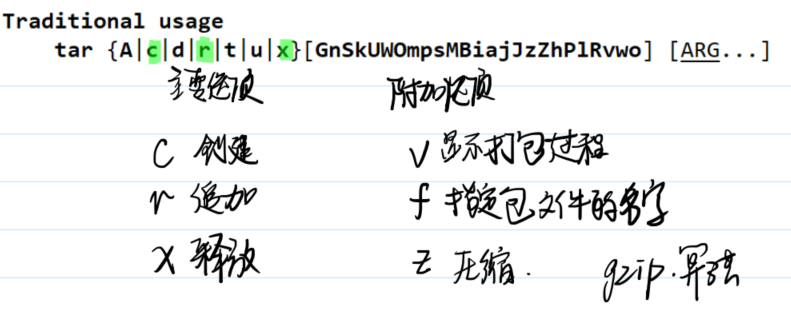 Traditional usage
tar {A|c|d|r|t|u|x}[GnSkUWOmpsMBiajJzZhPlRvwo] [ARG...]
主要选项 附加选项
c 创建 v 显示打包过程
r 追加 f 指定包文件的名字
x 释放 z 压缩. gzip.算法